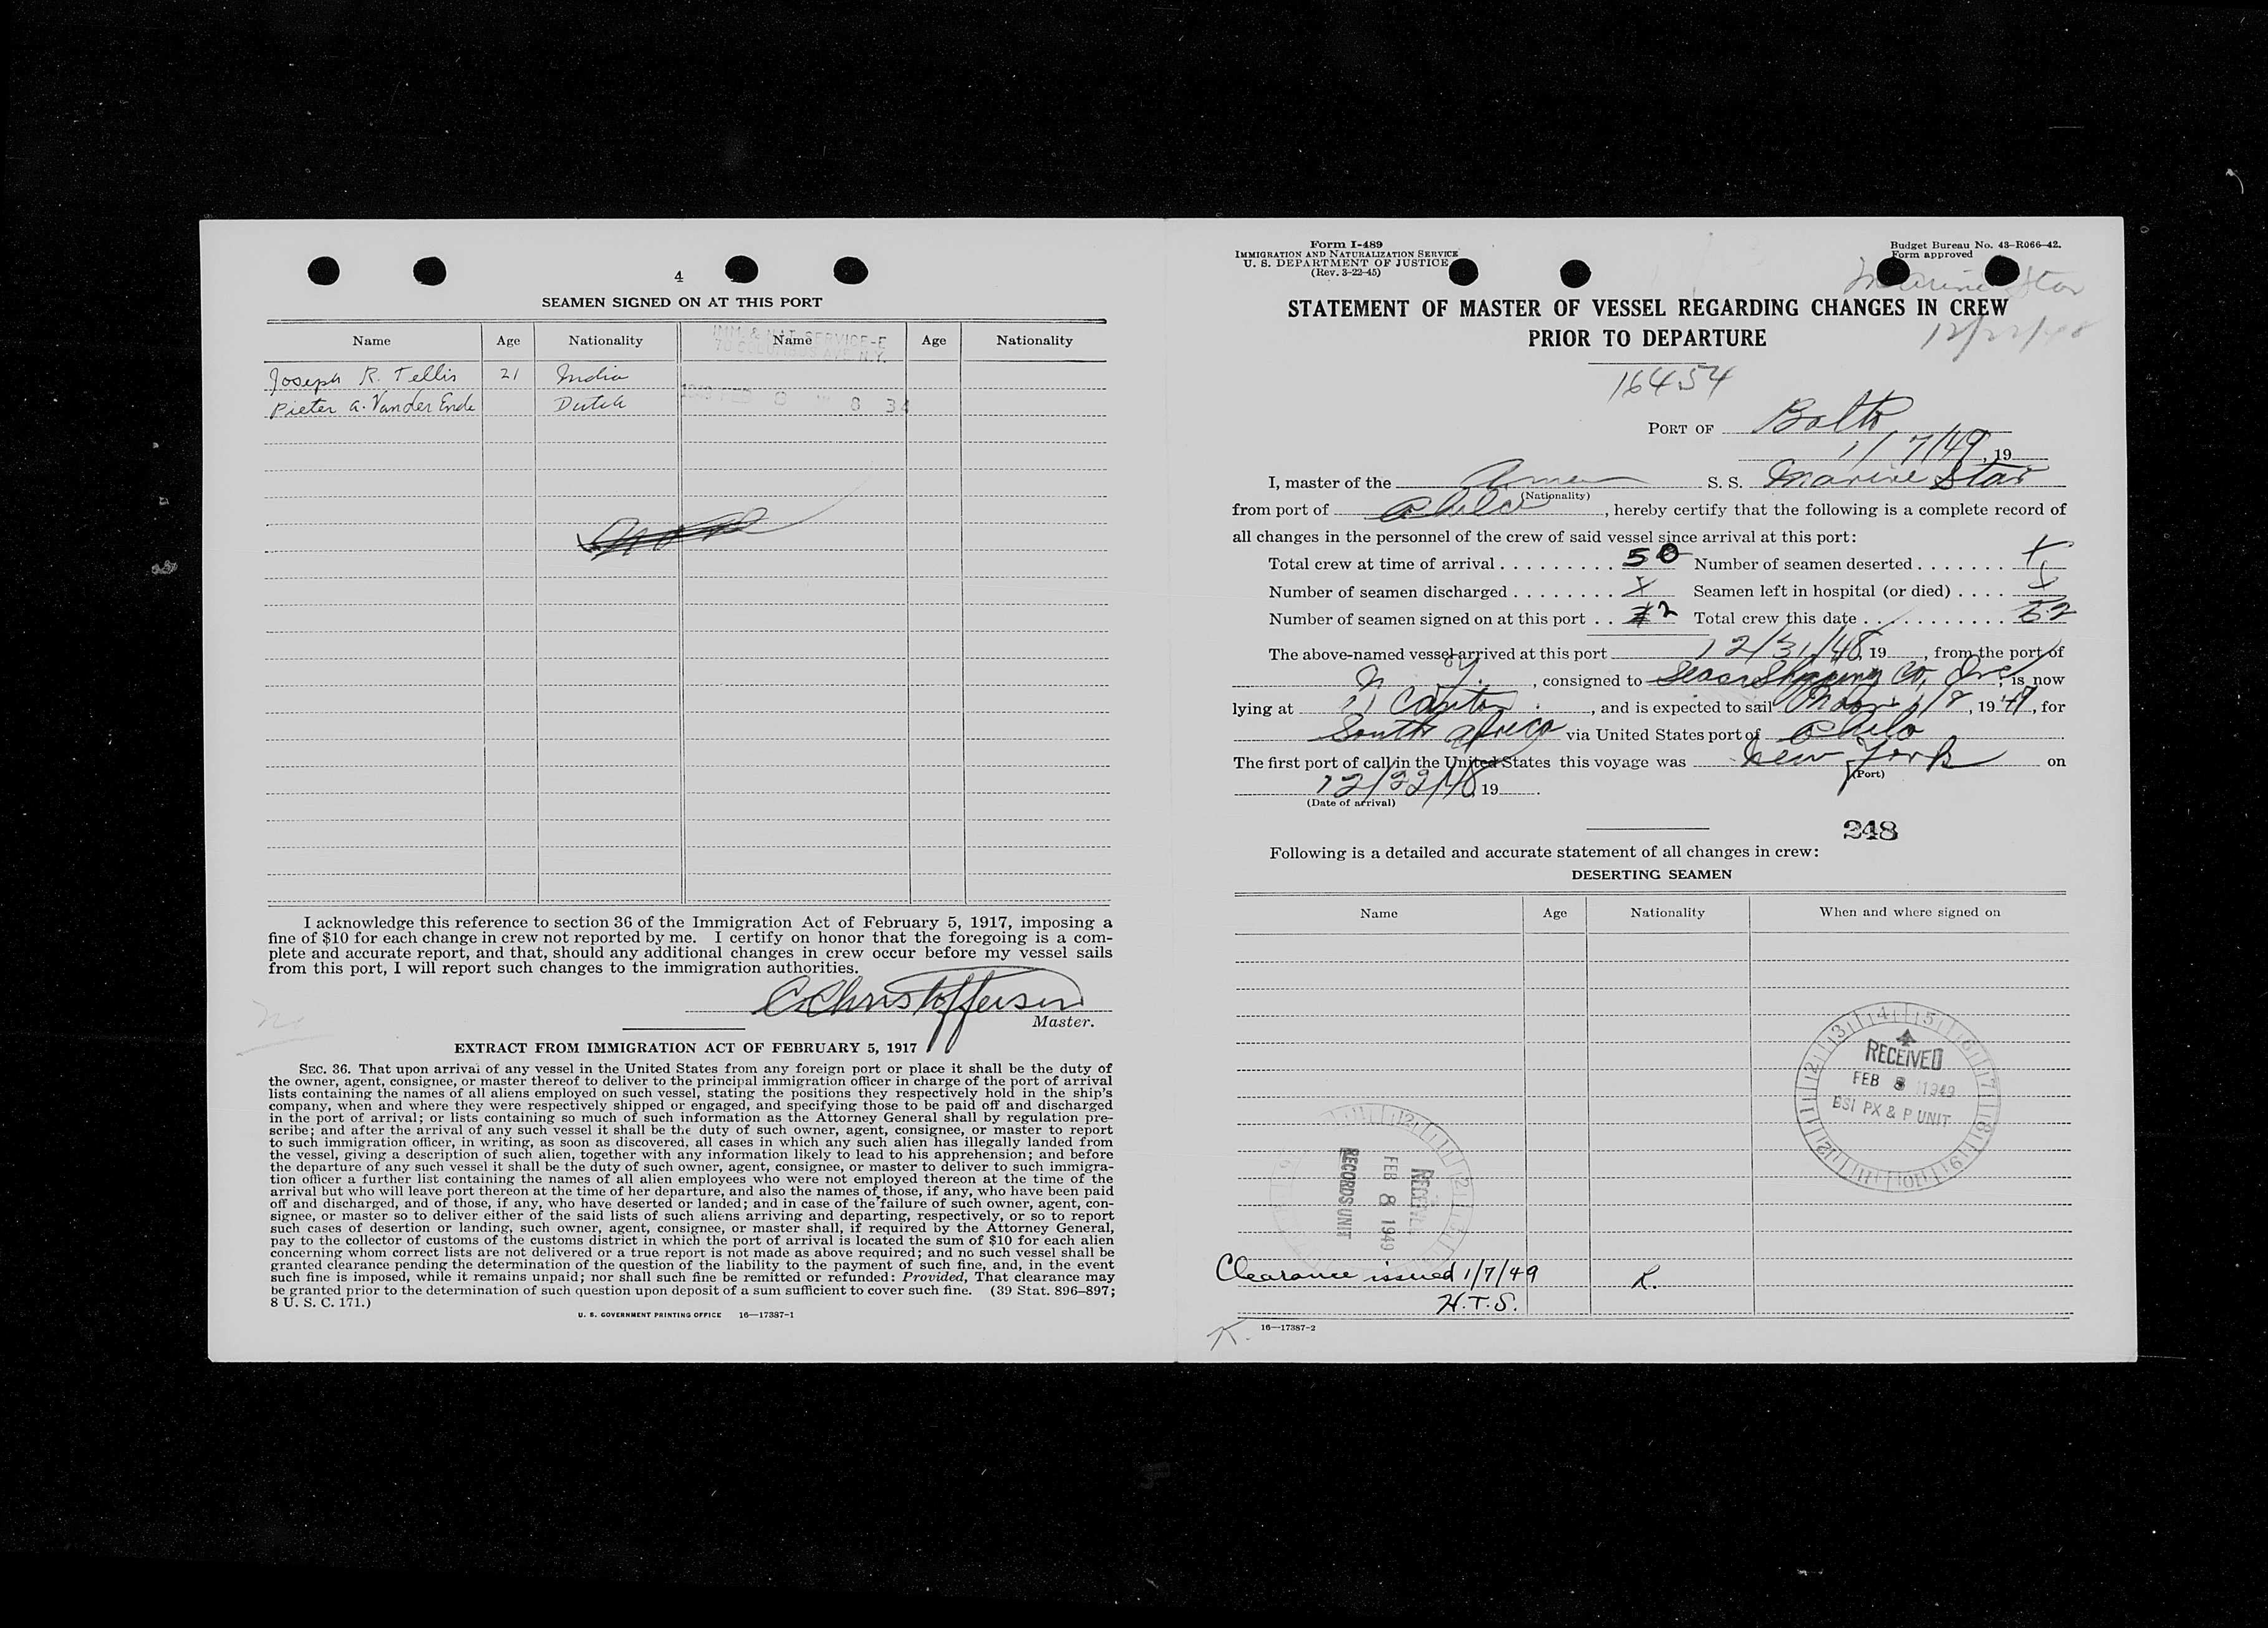 4
SEAMEN SIGNED ON AT THIS PORT
Name Age Nationality Name Age Nationality
IMM. & NAT. SERVICE-E
70 COLUMBUS AVE N.Y.
Joseph R. Tellis 21 India
Pieter A. Vander Ende Dutch
I acknowledge this reference to section 36 of the Immigration Act of February 5, 1917, imposing a
fine of $10 for each change in crew not reported by me. I certify on honor that the foregoing is a com-
plete and accurate report, and that, should any additional changes in crew occur before my vessel sails
from this port, I will report such changes to the immigration authorities.
C Christoffersen
Master.
EXTRACT FROM IMMIGRATION ACT OF FEBRUARY 5, 1917
SEC. 36. That upon arrival of any vessel in the United States from any foreign port or place it shall be the duty of
the owner, agent, consignee, or master thereof to deliver to the principal immigration officer in charge of the port of arrival
lists containing the names of all aliens employed on such vessel, stating the positions they respectively hold in the ship's
company, when and where they were respectively shipped or engaged, and specifying those to be paid off and discharged
in the port of arrival; or lists containing so much of such information as the Attorney General shall by regulation pre-
scribe; and after the arrival of any such vessel it shall be the duty of such owner, agent, consignee, or master to report
to such immigration officer, in writing, as soon as discovered, all cases in which any such alien has illegally landed from
the vessel, giving a description of such alien, together with any information likely to lead to his apprehension; and before
the departure of any such vessel it shall be the duty of such owner, agent, consignee, or master to deliver to such immigra-
tion officer a further list containing the names of all alien employees who were not employed thereon at the time of the
arrival but who will leave port thereon at the time of her departure, and also the names of those, if any, who have been paid
off and discharged, and of those, if any, who have deserted or landed; and in case of the failure of such owner, agent, con-
signee, or master so to deliver either of the said lists of such aliens arriving and departing, respectively, or so to report
such cases of desertion or landing, such owner, agent, consignee, or master shall, if required by the Attorney General,
pay to the collector of customs of the customs district in which the port of arrival is located the sum of $10 for each alien
concerning whom correct lists are not delivered or a true report is not made as above required; and no such vessel shall be
granted clearance pending the determination of the question of the liability to the payment of such fine, and, in the event
such fine is imposed, while it remains unpaid; nor shall such fine be remitted or refunded: Provided, That clearance may
be granted prior to the determination of such question upon deposit of a sum sufficient to cover such fine. (39 Stat. 896-897;
8 U. S. C. 171.)
U. S. GOVERNMENT PRINTING OFFICE 16—17387-1
Form I-489
IMMIGRATION AND NATURALIZATION SERVICE
U. S. DEPARTMENT OF JUSTICE
(Rev. 3-22-45)
Budget Bureau No. 43-R066-42.
Form approved
Marine Star
12/22/48
STATEMENT OF MASTER OF VESSEL REGARDING CHANGES IN CREW
PRIOR TO DEPARTURE
16454
PORT OF Balto
1/7/49, 19
I, master of the Amer S. S. Marine Star
(Nationality)
from port of Phila, hereby certify that the following is a complete record of
all changes in the personnel of the crew of said vessel since arrival at this port:
Total crew at time of arrival . . . . . . . . . 50 Number of seamen deserted . . . . . . . X
Number of seamen discharged . . . . . . . . X Seamen left in hospital (or died) . . . . X
Number of seamen signed on at this port . . 2 Total crew this date . . . . . . . . . . . 52
The above-named vessel arrived at this port 12/31/48, 19 , from the port of
N. Y. , consigned to Seas Shipping Co, Inc, is now
lying at 11 Canton , and is expected to sail Noon 1/8, 1949, for
South Africa via United States port of Phila
The first port of call in the United States this voyage was New York on
(Port)
12/22/48, 19 .
(Date of arrival)
248
Following is a detailed and accurate statement of all changes in crew:
DESERTING SEAMEN
Name Age Nationality When and where signed on
RECEIVED
FEB 8 1949
BSI PX & P UNIT
RECEIVED
FEB 8 1949
RECORDS UNIT
Clearance issued 1/7/49 R.
H.T.S.
K. 16—17387-2